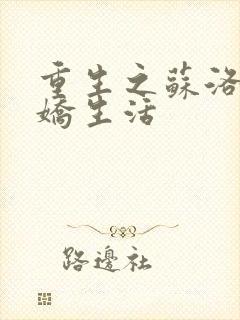 重生之蘇洛
嬌生活
路邊社